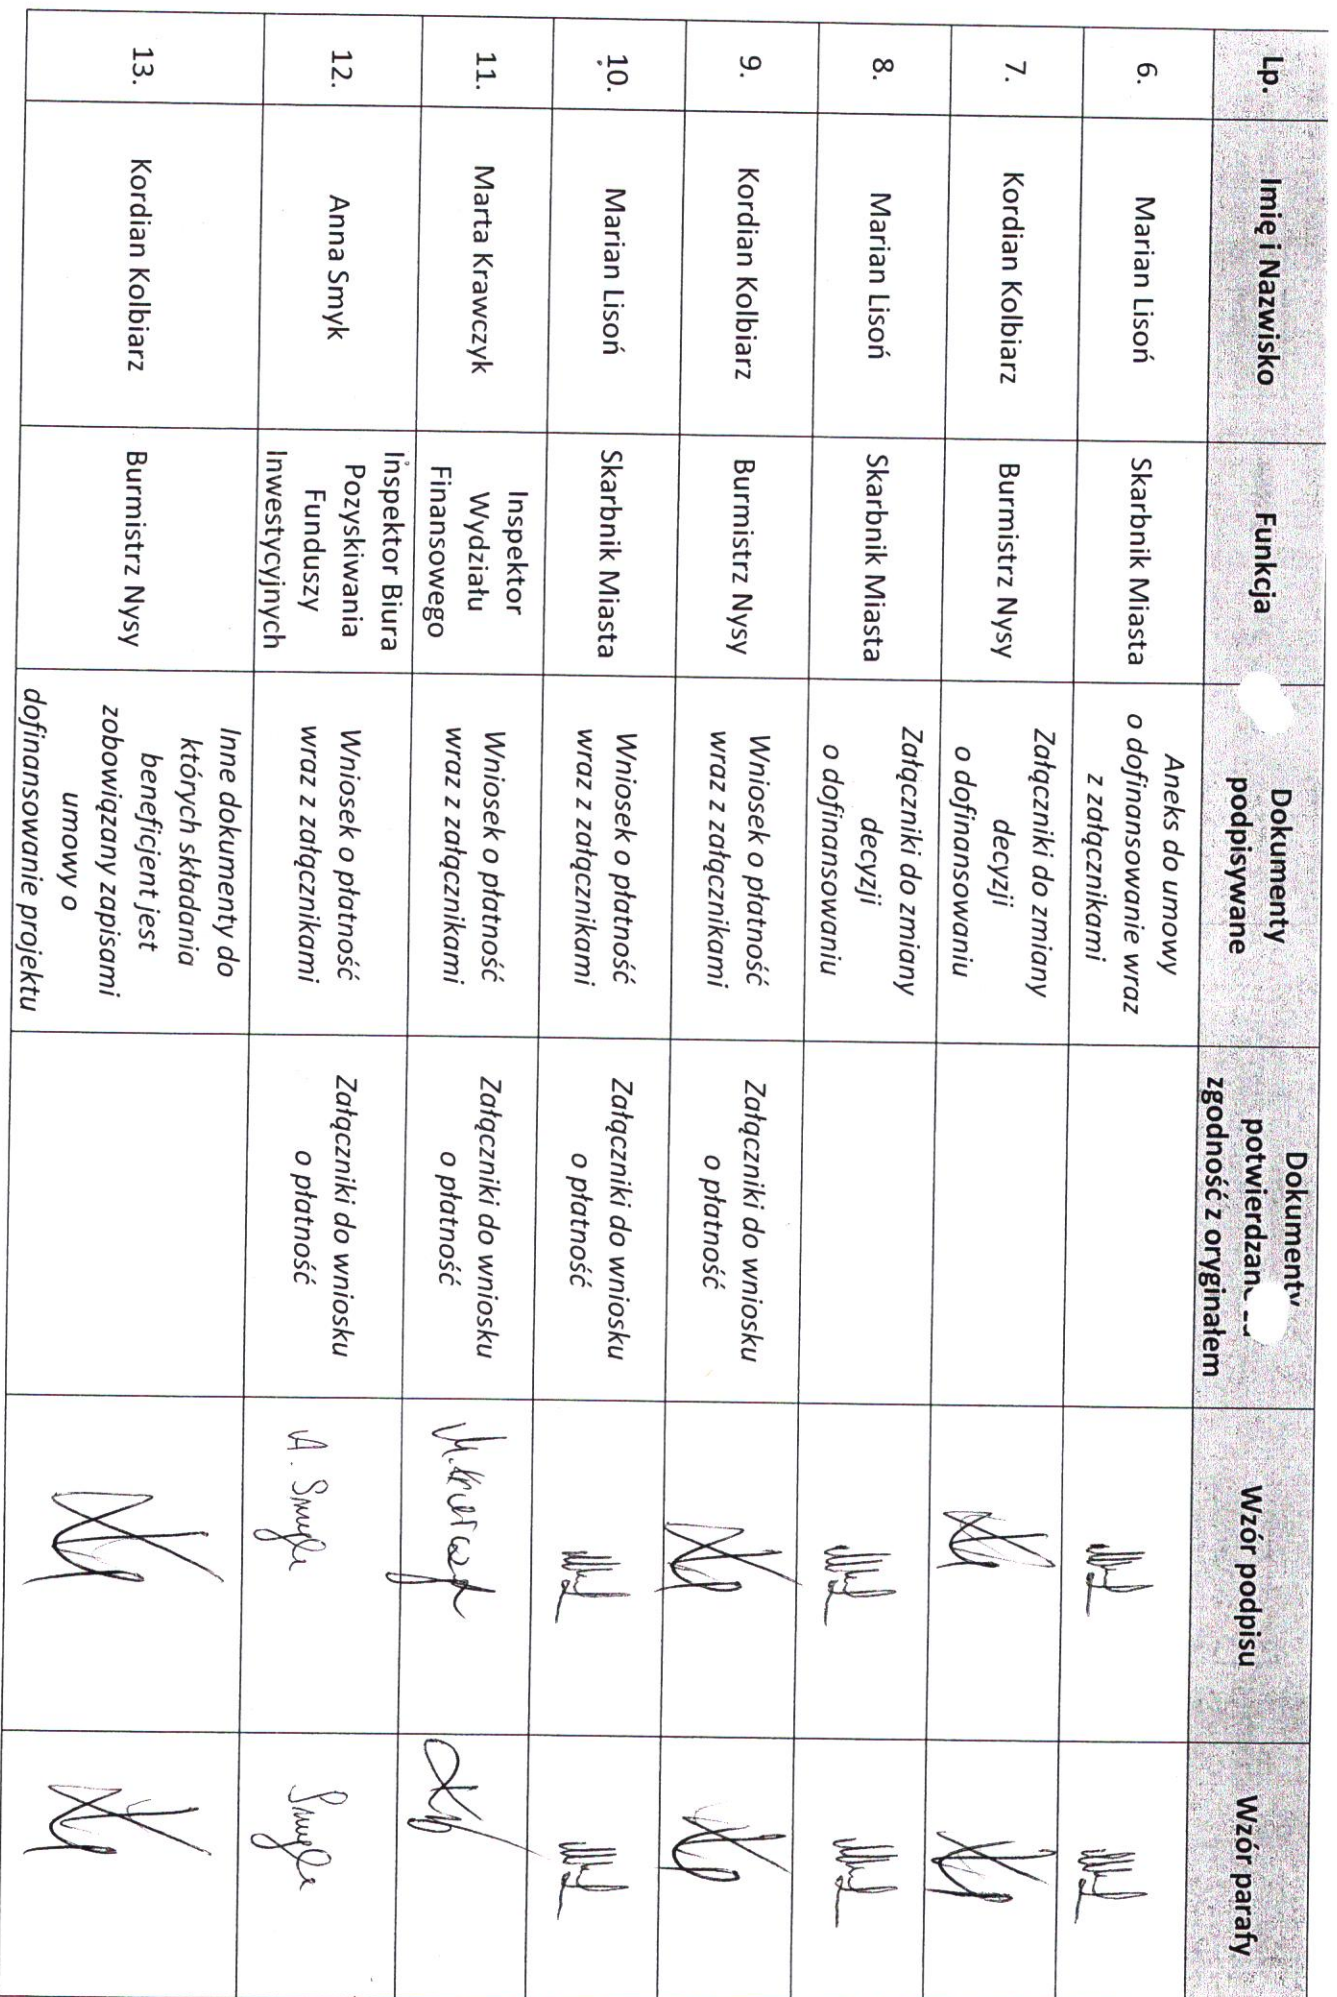 Lp.
Imię i Nazwisko
Funkcja
Dokumenty
podpisywane
Dokumenty
potwierdzane za
zgodność z oryginałem
Wzór podpisu
Wzór parafy
6.
Marian Lisoń
Skarbnik Miasta
Aneks do umowy
o dofinansowanie wraz
z załącznikami
7.
Kordian Kolbiarz
Burmistrz Nysy
Załączniki do zmiany
decyzji
o dofinansowaniu
8.
Marian Lisoń
Skarbnik Miasta
Załączniki do zmiany
decyzji
o dofinansowaniu
9.
Kordian Kolbiarz
Burmistrz Nysy
Wniosek o płatność
wraz z załącznikami
Załączniki do wniosku
o płatność
10.
Marian Lisoń
Skarbnik Miasta
Wniosek o płatność
wraz z załącznikami
Załączniki do wniosku
o płatność
11.
Marta Krawczyk
Inspektor
Wydziału
Finansowego
Wniosek o płatność
wraz z załącznikami
Załączniki do wniosku
o płatność
12.
Anna Smyk
Inspektor Biura
Pozyskiwania
Funduszy
Inwestycyjnych
Wniosek o płatność
wraz z załącznikami
Załączniki do wniosku
o płatność
A. Smyk
Smyk
13.
Kordian Kolbiarz
Burmistrz Nysy
Inne dokumenty do
których składania
beneficjent jest
zobowiązany zapisami
umowy o
dofinansowanie projektu